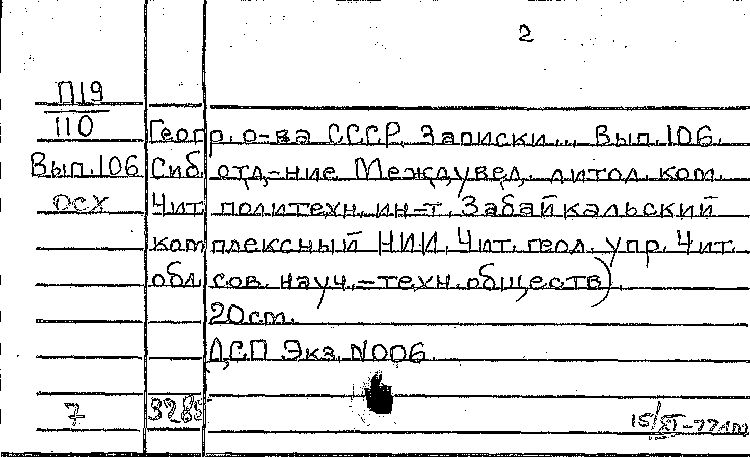 2
П19
110
Геогр. о-ва СССР. Записки... Вып. 106.
Вып. 106 Сиб. отд-ние Междувед. литол. ком.
ОСХ Чит. политехн. ин-т, Забайкальский
комплексный НИИ, Чит. геол. упр. Чит.
обл. сов. науч.-техн. обществ).
20 cm.
ДСП Экз. N006
7 3285 15/XI-77